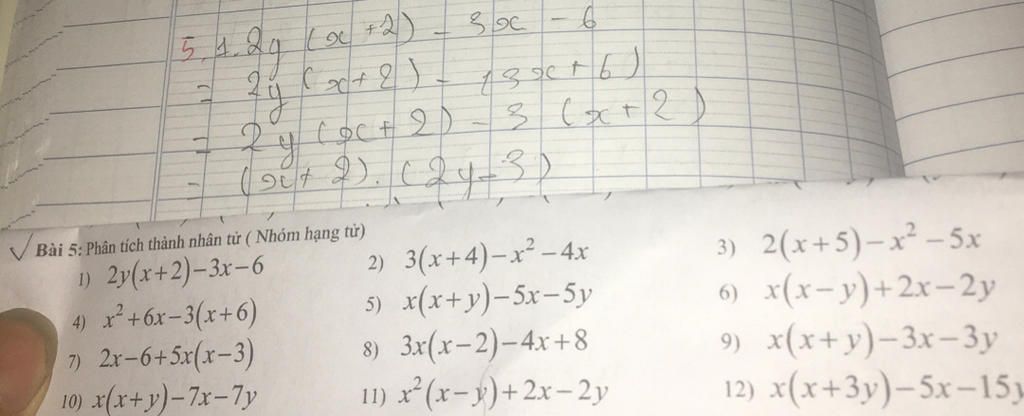 5. 1. 2y (x + 2) - 3x - 6
= 2y (x + 2) - (3x + 6)
= 2y (x + 2) - 3 (x + 2)
= (x + 2) . (2y - 3)
Bài 5: Phân tích thành nhân tử ( Nhóm hạng tử)
1) 2y(x+2)−3x−6 2) 3(x+4)−x²−4x 3) 2(x+5)−x²−5x
4) x²+6x−3(x+6) 5) x(x+y)−5x−5y 6) x(x−y)+2x−2y
7) 2x−6+5x(x−3) 8) 3x(x−2)−4x+8 9) x(x+y)−3x−3y
10) x(x+y)−7x−7y 11) x²(x−y)+2x−2y 12) x(x+3y)−5x−15y